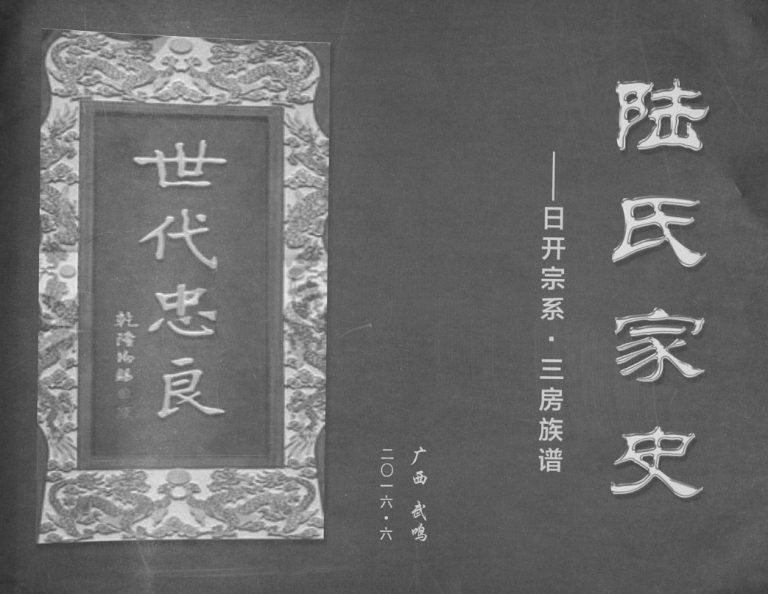 陆氏家史
——日开宗系·三房族谱
广西 武鸣
二〇一六·六
世代忠良
乾隆御赐